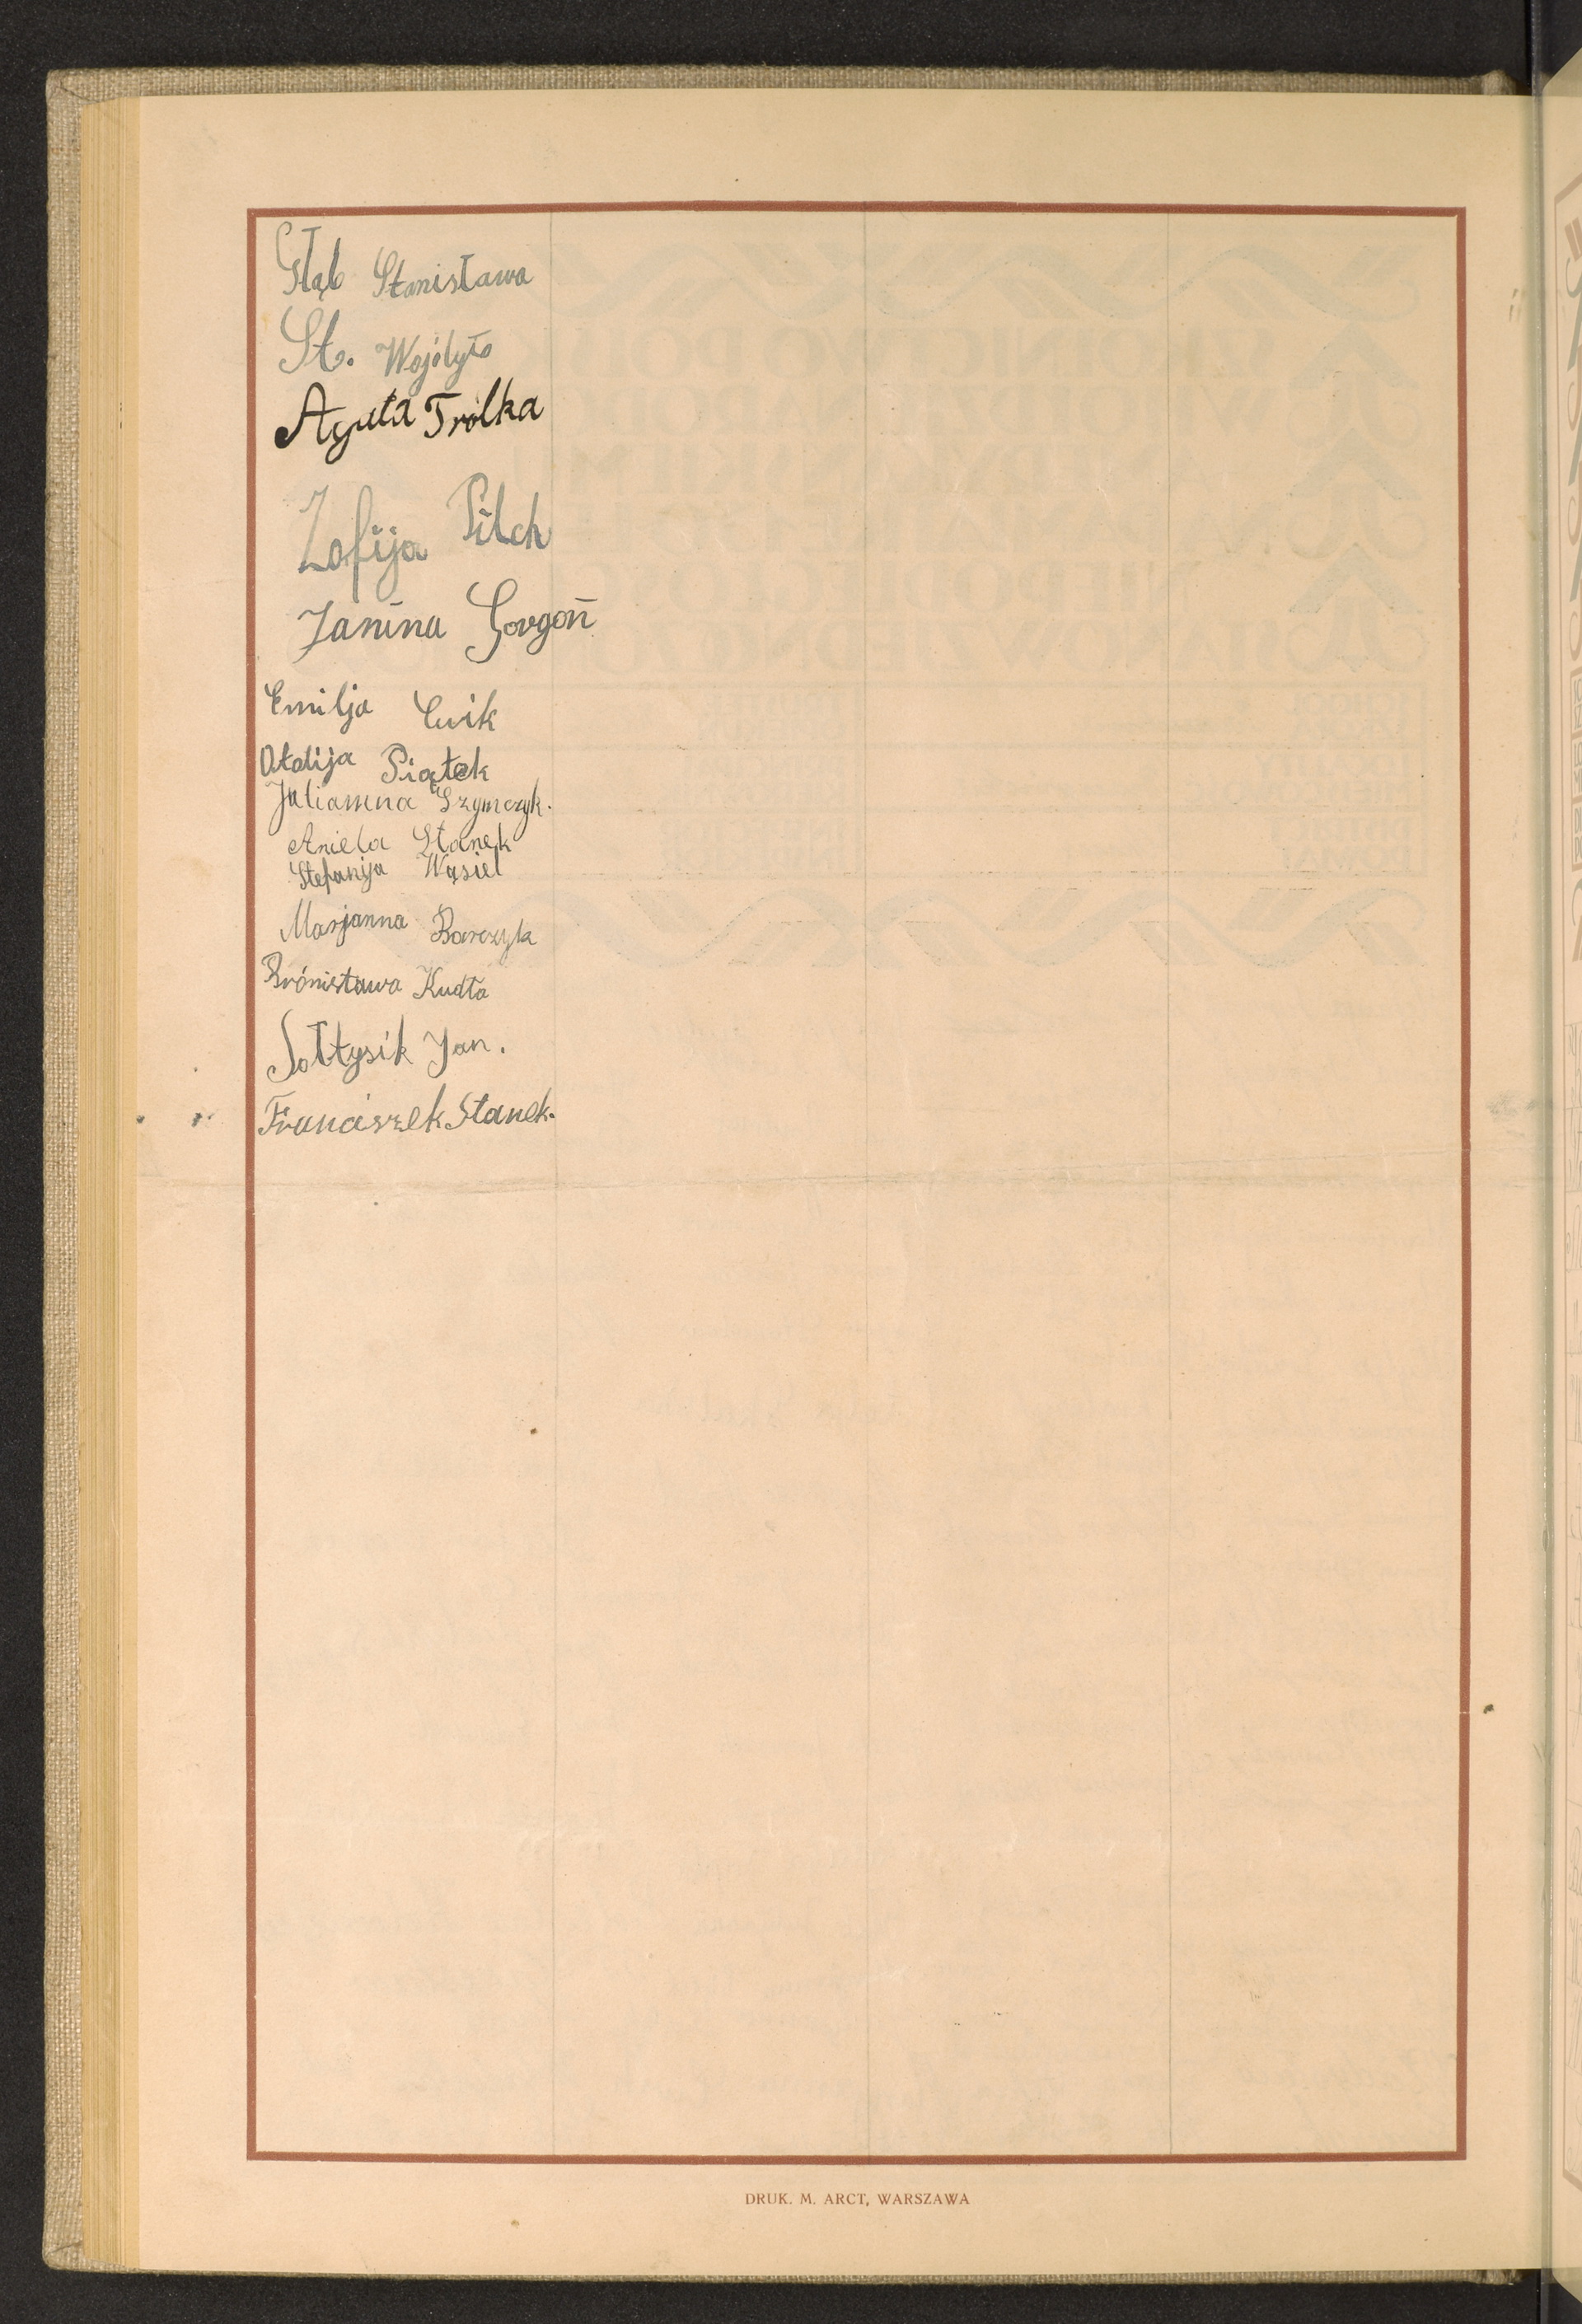 Głąb Stanisława
St. Wojdyło
Agata Trólka
Zofija Pilch
Janina Gorgoń
Emilja Cwik
Otolija Piątek
Julianna Szymczyk.
Aniela Stanek
Stefanija Wąsiel
Marjanna Barczyk
Brónisława Kudła
Sołtysik Jan.
Franciszek Stanek.
DRUK. M. ARCT, WARSZAWA